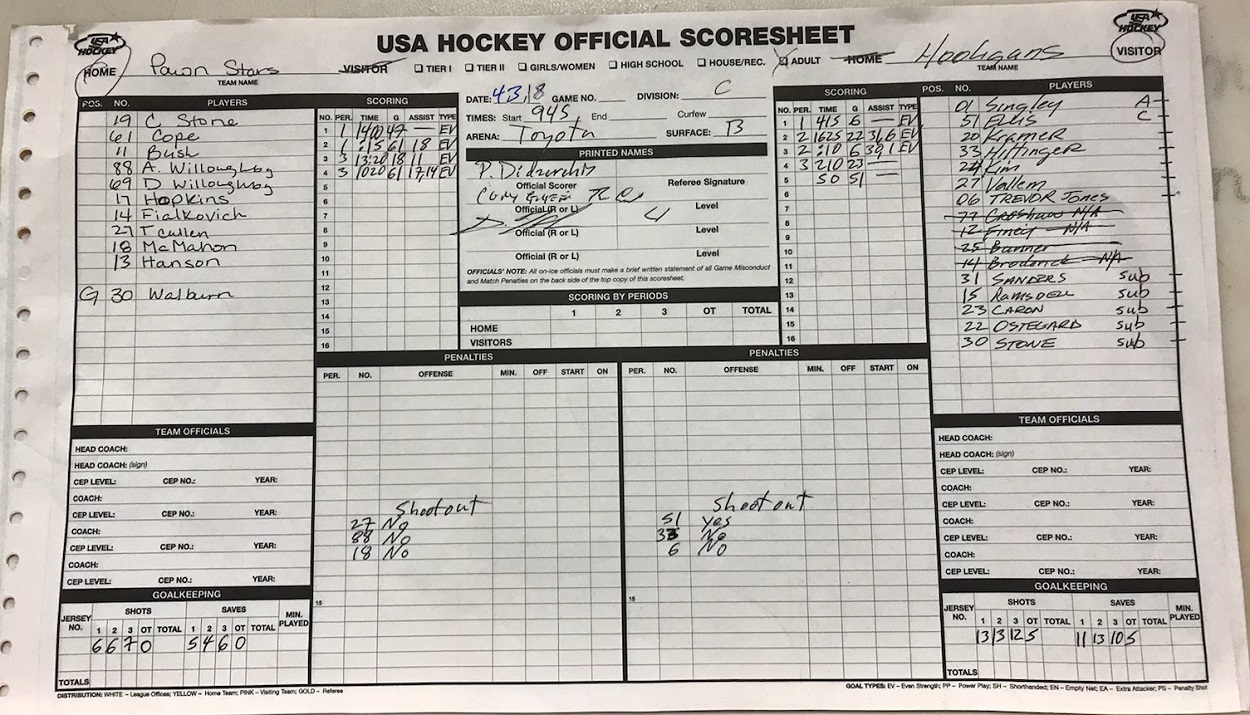 USA HOCKEY OFFICIAL SCORESHEET
USA HOCKEY
USA HOCKEY
HOME Pawn Stars VISITOR
TEAM NAME
TIER I TIER II GIRLS/WOMEN HIGH SCHOOL HOUSE/REC. ADULT
HOME Hooligans VISITOR
TEAM NAME
POS. NO. PLAYERS
19 C Stone
61 Cope
11 Bush
88 A. Willoughby
69 D Willoughby
17 Hopkins
14 Fialkovich
27 T Cullen
18 McMahon
13 Hanson
G 30 Walburn
SCORING
NO. PER. TIME G ASSIST TYPE
1 1 1402 47 — EV
2 1 :15 61 18 EV
3 3 13:20 18 11 EV
4 3 1020 61 17,14 EV
5
6
7
8
9
10
11
12
13
14
15
16
DATE: 4 3 18 GAME NO. DIVISION: C
TIMES: Start 945 End Curfew
ARENA: Toyota SURFACE: B
PRINTED NAMES
Official Scorer Referee Signature
Official (R or L) Level
Official (R or L) Level
Official (R or L) Level
OFFICIALS' NOTE: All on-ice officials must make a brief written statement of all Game Misconduct
and Match Penalties on the back side of the top copy of this scoresheet.
SCORING BY PERIODS
1 2 3 OT TOTAL
HOME
VISITORS
SCORING
NO. PER. TIME G ASSIST TYPE
1 1 415 6 — EV
2 2 1625 22 31,6 EV
3 2 :10 6 EV
4 3 210 23 —
5 S0 51 —
6
7
8
9
10
11
12
13
14
15
16
POS. NO. PLAYERS
01 Singley A
51 ELLIS C
20 Kramer
33 Hittinger
24 Kim
27 Vallem
06 TREVOR JONES
77 Crenshaw N/A
12 Finey N/A
25 Banner
14 Broderick N/A
31 SANDERS SUB
15 RAMSDELL SUB
23 CARON SUB
22 OSTEGARD SUB
30 STONE SUB
PENALTIES
PER. NO. OFFENSE MIN. OFF START ON
Shootout
27 No
88 No
18 No
15
PENALTIES
PER. NO. OFFENSE MIN. OFF START ON
Shootout
51 yes
33 No
6 No
15
TEAM OFFICIALS
HEAD COACH:
HEAD COACH: (sign)
CEP LEVEL: CEP NO.: YEAR:
COACH:
CEP LEVEL: CEP NO.: YEAR:
COACH:
CEP LEVEL: CEP NO.: YEAR:
COACH:
CEP LEVEL: CEP NO.: YEAR:
GOALKEEPING
JERSEY NO. SHOTS SAVES MIN. PLAYED
1 2 3 OT TOTAL 1 2 3 OT TOTAL
6 6 7 0 5 4 6 0
TOTALS
TEAM OFFICIALS
HEAD COACH:
HEAD COACH: (sign)
CEP LEVEL: CEP NO.: YEAR:
COACH:
CEP LEVEL: CEP NO.: YEAR:
COACH:
CEP LEVEL: CEP NO.: YEAR:
COACH:
CEP LEVEL: CEP NO.: YEAR:
GOALKEEPING
JERSEY NO. SHOTS SAVES MIN. PLAYED
1 2 3 OT TOTAL 1 2 3 OT TOTAL
13 13 12 5 11 13 10 5
TOTALS
DISTRIBUTION: WHITE – League Offices; YELLOW – Home Team; PINK – Visiting Team; GOLD – Referee
GOAL TYPES: EV – Even Strength; PP – Power Play; SH – Shorthanded; EN – Empty Net; EA – Extra Attacker; PS – Penalty Shot